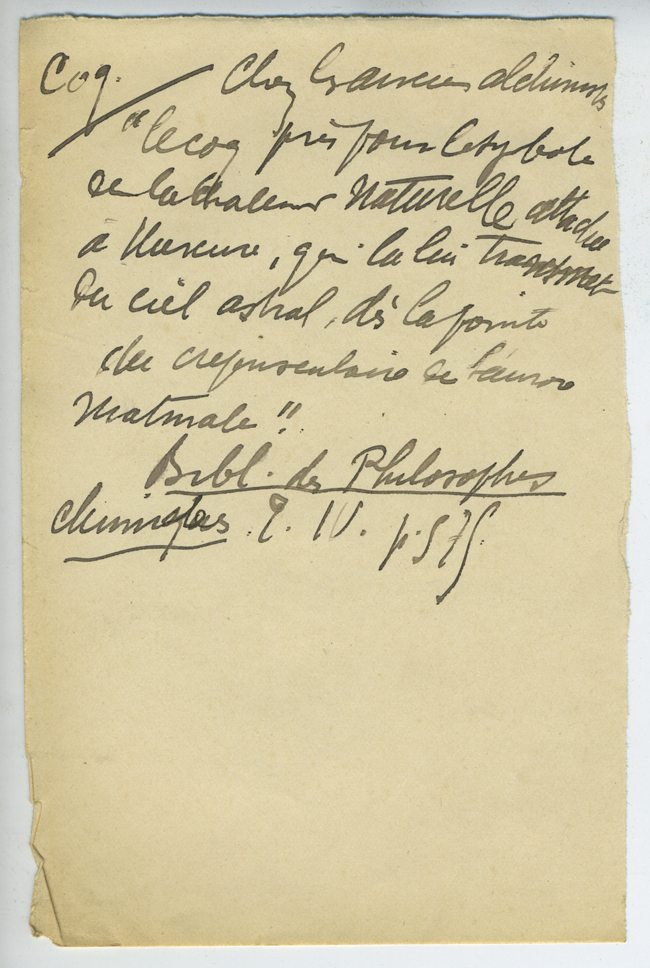 Coq. Chez les anciens alchimistes
"le coq pris pour le symbole
de la chaleur Naturelle attachée
à Mercure, qui la lui transmet
du ciel astral, dès la pointe
du crepusculaire de l'aurore
Matinale".
Bibl. des Philosophes
chimiques. T. IV. p. 575.